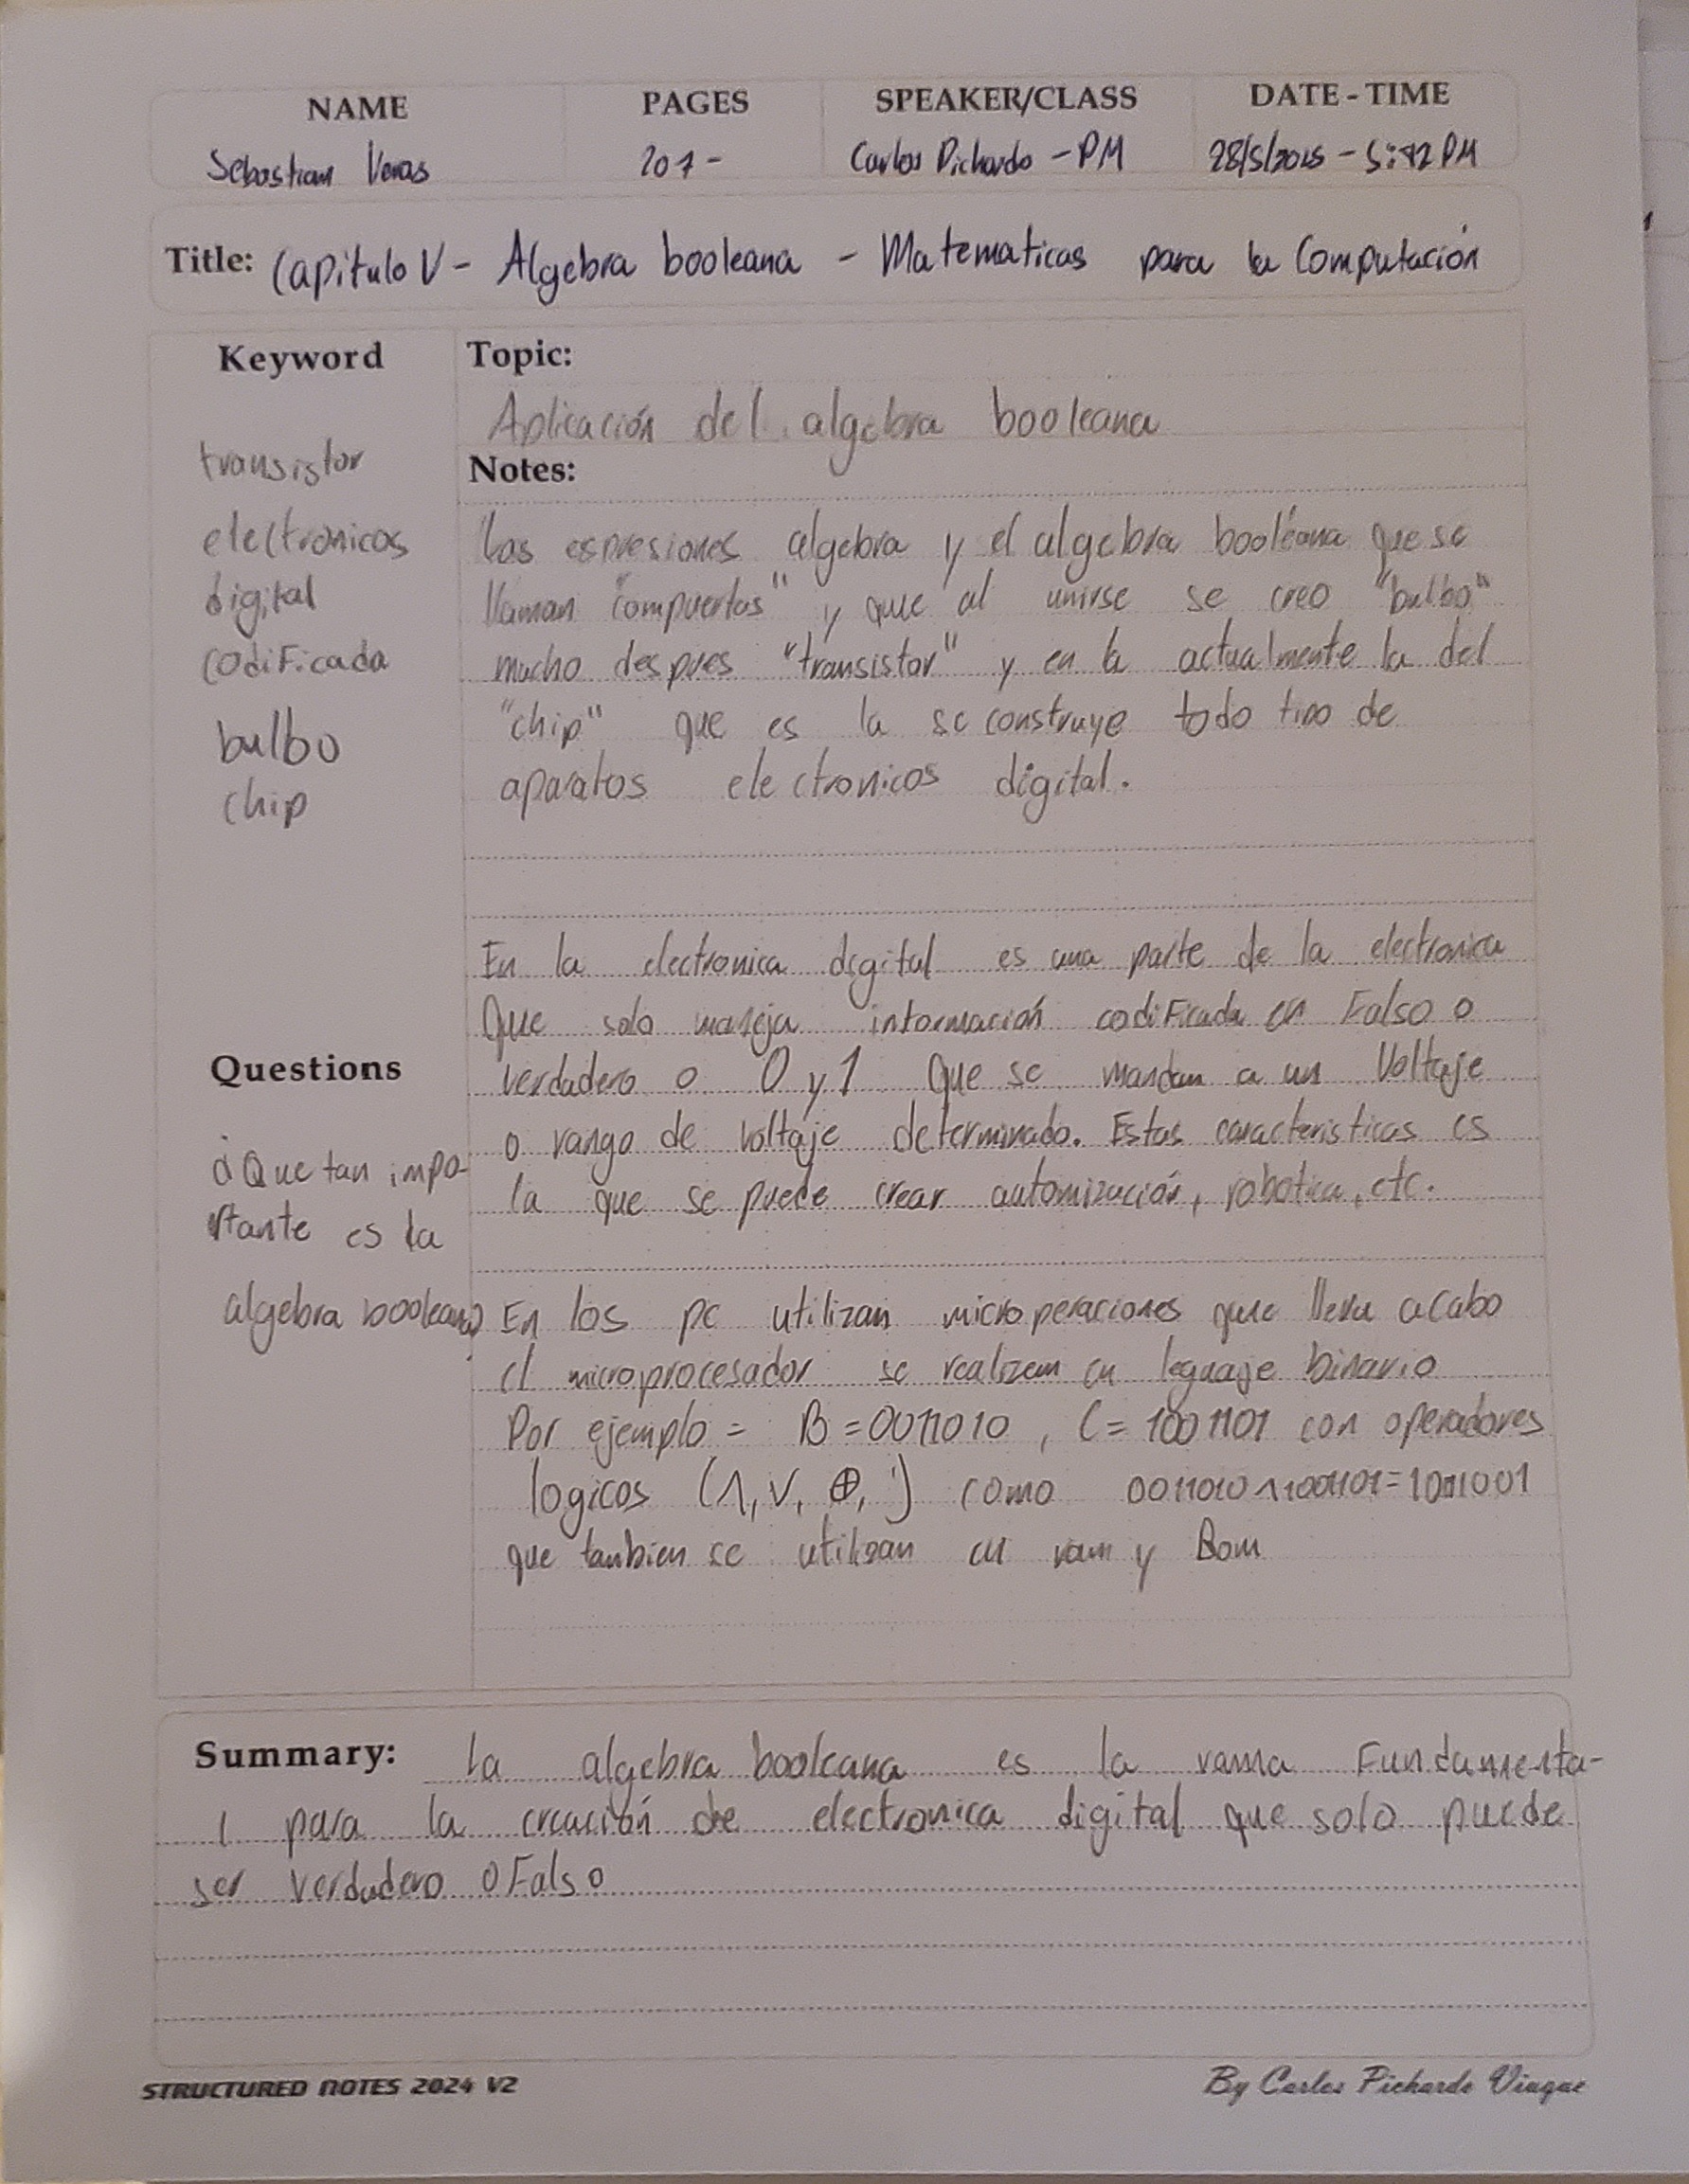 NAME PAGES SPEAKER/CLASS DATE - TIME
Sebastian Veras 201- Carlos Pichardo - PM 28/5/2025 - 5:42 PM
Title: Capitulo V - Algebra booleana - Matematicas para la Computación
Keyword
transistor
electronicos
digital
codificada
bulbo
chip
Questions
¿Que tan impo-
rtante es la
algebra booleana?
Topic:
Aplicación del algebra booleana
Notes:
Las espresiones algebra y el algebra booleana que se
llaman "compuertas" y que al unirse se creo "bulbo"
mucho despues "transistor" y en la actualmente la del
"chip" que es la se construye todo tipo de
aparatos electronicos digital.
En la electronica digital es una parte de la electronica
Que solo maneja información codificada en Falso o
verdadero o 0 y 1 Que se mandan a un Voltaje
o rango de voltaje determinado. Estas caracteristicas es
la que se puede crear automización, robotica, etc.
En los pc utilizan microperaciones que lleva acabo
el microprocesador se realizan en leguaje binario
Por ejemplo = B = 0011010 , C = 1001101 con operadores
logicos (∧, ∨, ⊕, ') como 0011010 ∧ 1001101 =
que tanbien se utilizan en ram y Rom
Summary: La algebra booleana es la rama Fundamenta-
l para la creación de electronica digital que solo puede
ser verdadero o Falso
STRUCTURED NOTES 2024 V2
By Carlos Pichardo Viuque